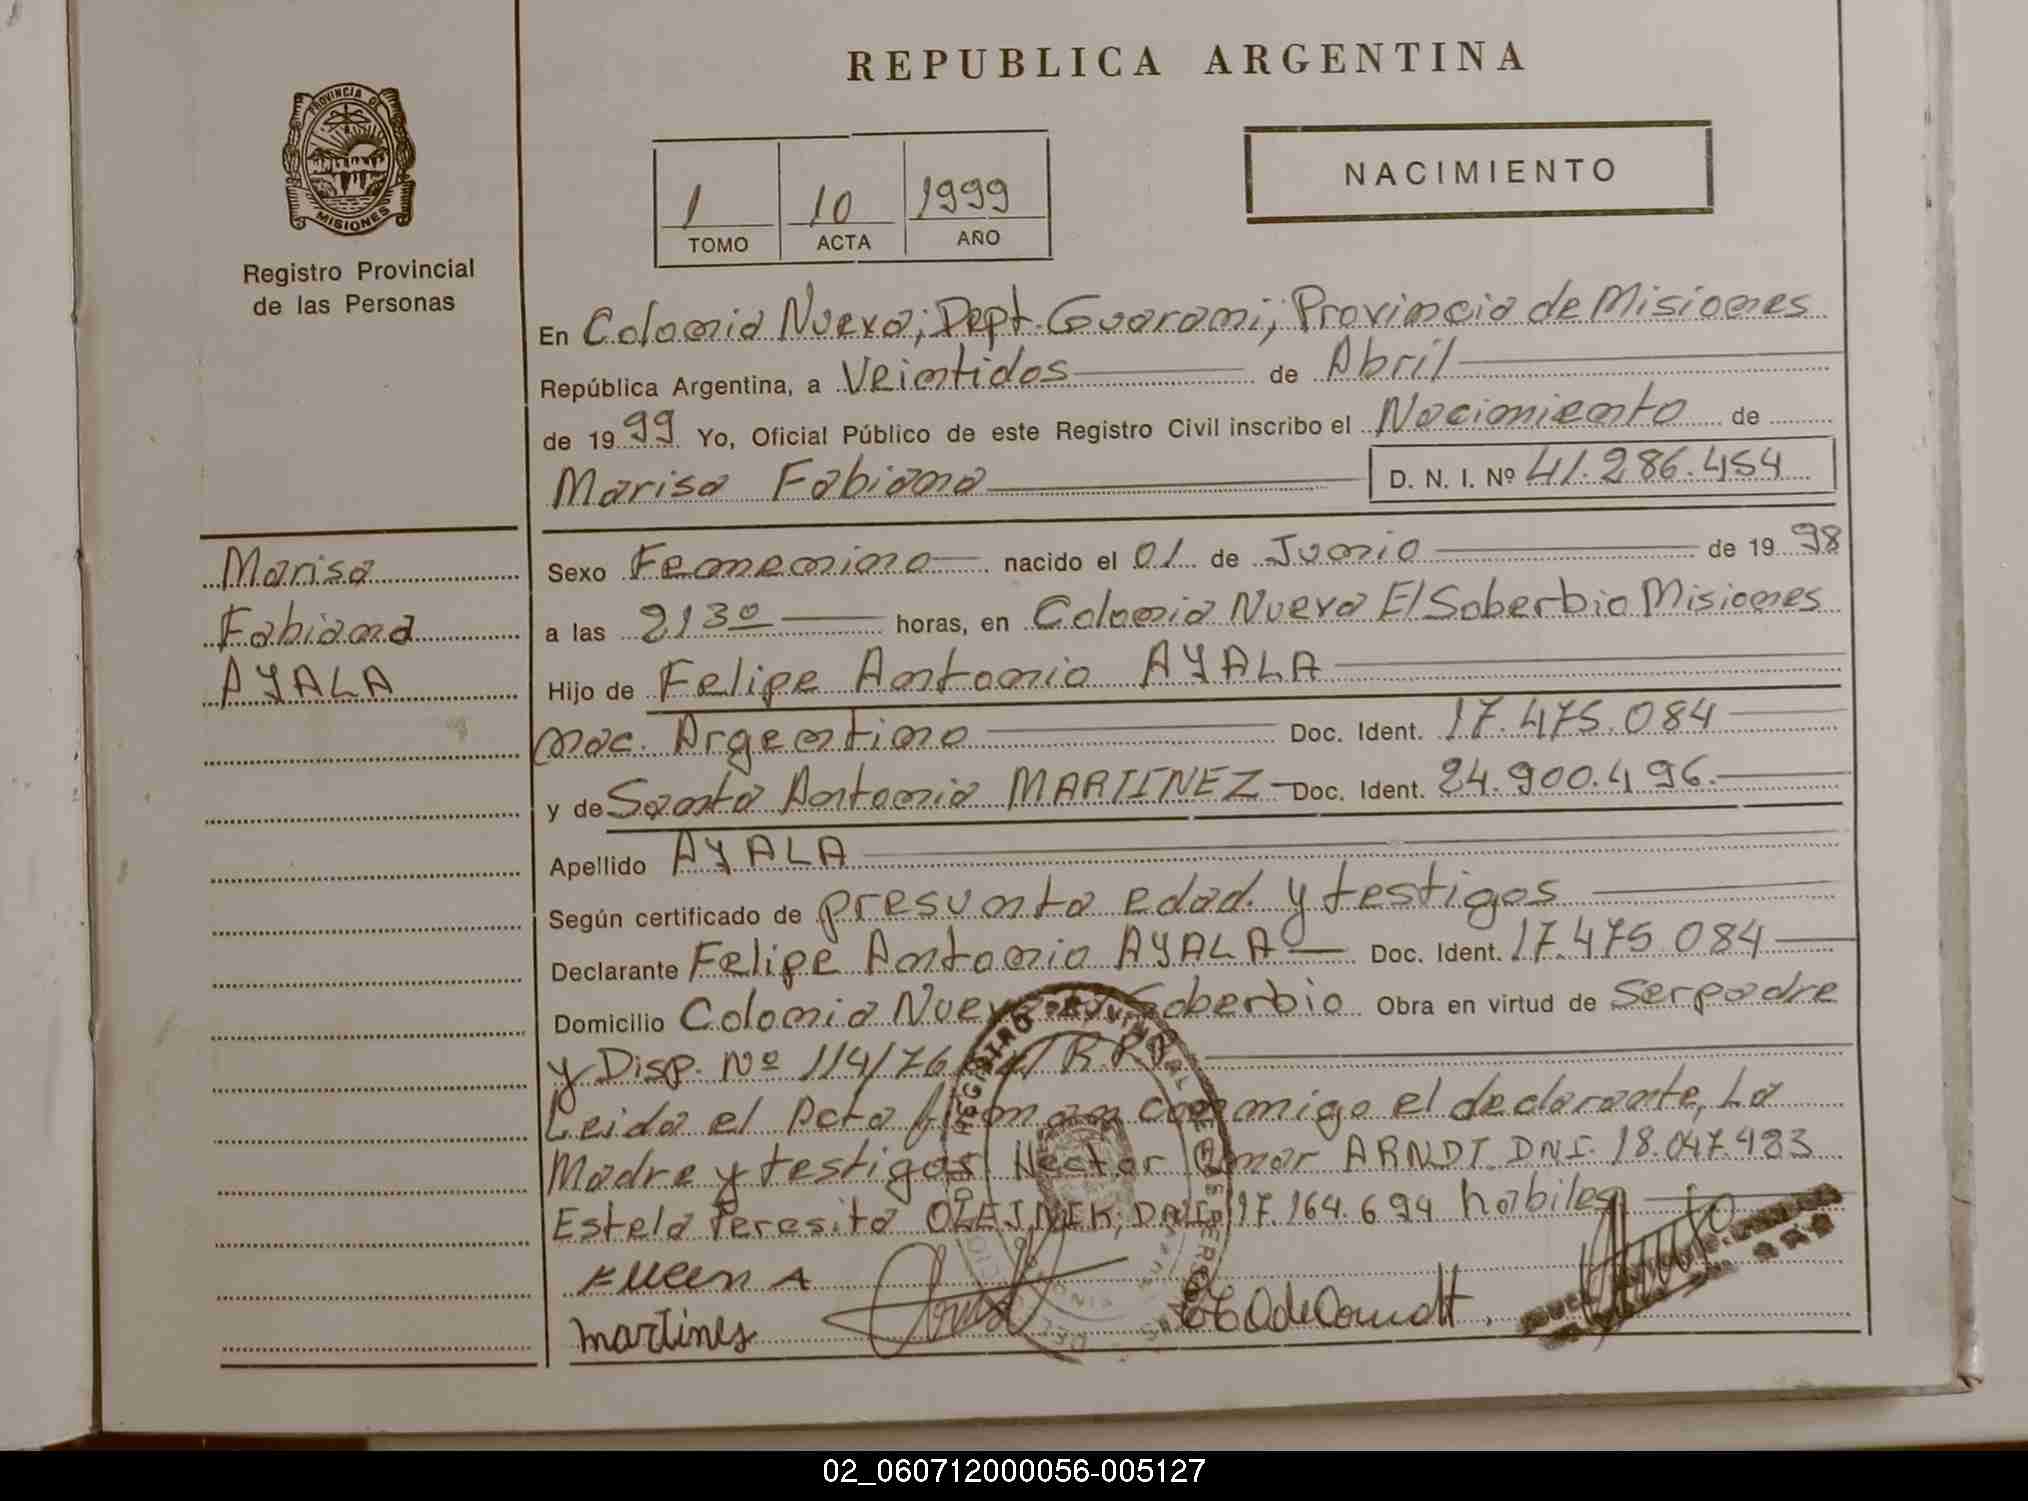 REPUBLICA ARGENTINA
PROVINCIA DE
MISIONES
Registro Provincial
de las Personas
1 10 1999
TOMO ACTA AÑO
NACIMIENTO
En Colonia Nueva; Dept. Guarani; Provincia de Misiones
República Argentina, a Veintidos de Abril
de 1999 Yo, Oficial Público de este Registro Civil inscribo el Nacimiento de
Marisa Fabiana D. N. I. Nº 41.286.454
Marisa
Fabiana
AYALA
Sexo Femenino nacido el 01 de Junio de 1998
a las 2130 horas, en Colonia Nueva El Soberbio Misiones
Hijo de Felipe Antonio AYALA
nac. Argentino Doc. Ident. 17.475.084
y de Santa Antonia MARTINEZ Doc. Ident. 24.900.496.
Apellido AYALA
Según certificado de presunta edad. y testigos
Declarante Felipe Antonio AYALA Doc. Ident. 17.475.084
Domicilio Colonia Nueva Soberbio Obra en virtud de Ser padre
y Disp. Nº 114/76
Leida el Acta firman conmigo el declarante, La
Madre y testigos Hector Omar ARNDT DNI. 18.047.483
Estela Teresita OLEJNIK; DNI 17.164.694 habiles
martines
02_060712000056-005127